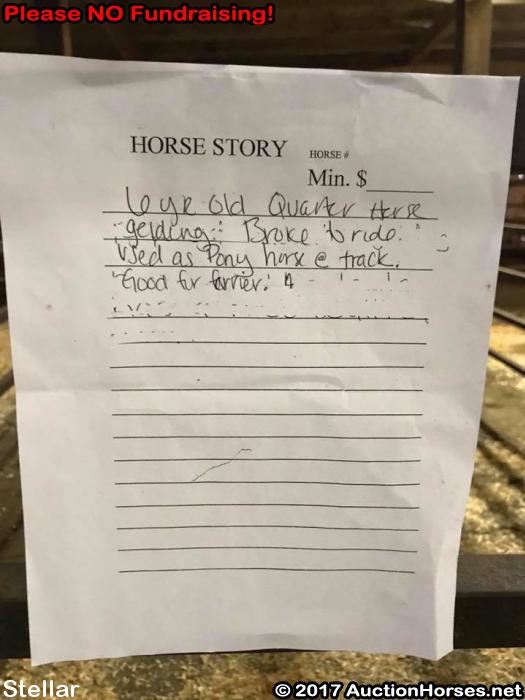 Please NO Fundraising!
HORSE STORY HORSE #
Min. $
6 yr old Quarter Horse
gelding. Broke to ride.
Used as Pony horse @ track.
Good for farrier.
Stellar
© 2017 AuctionHorses.net